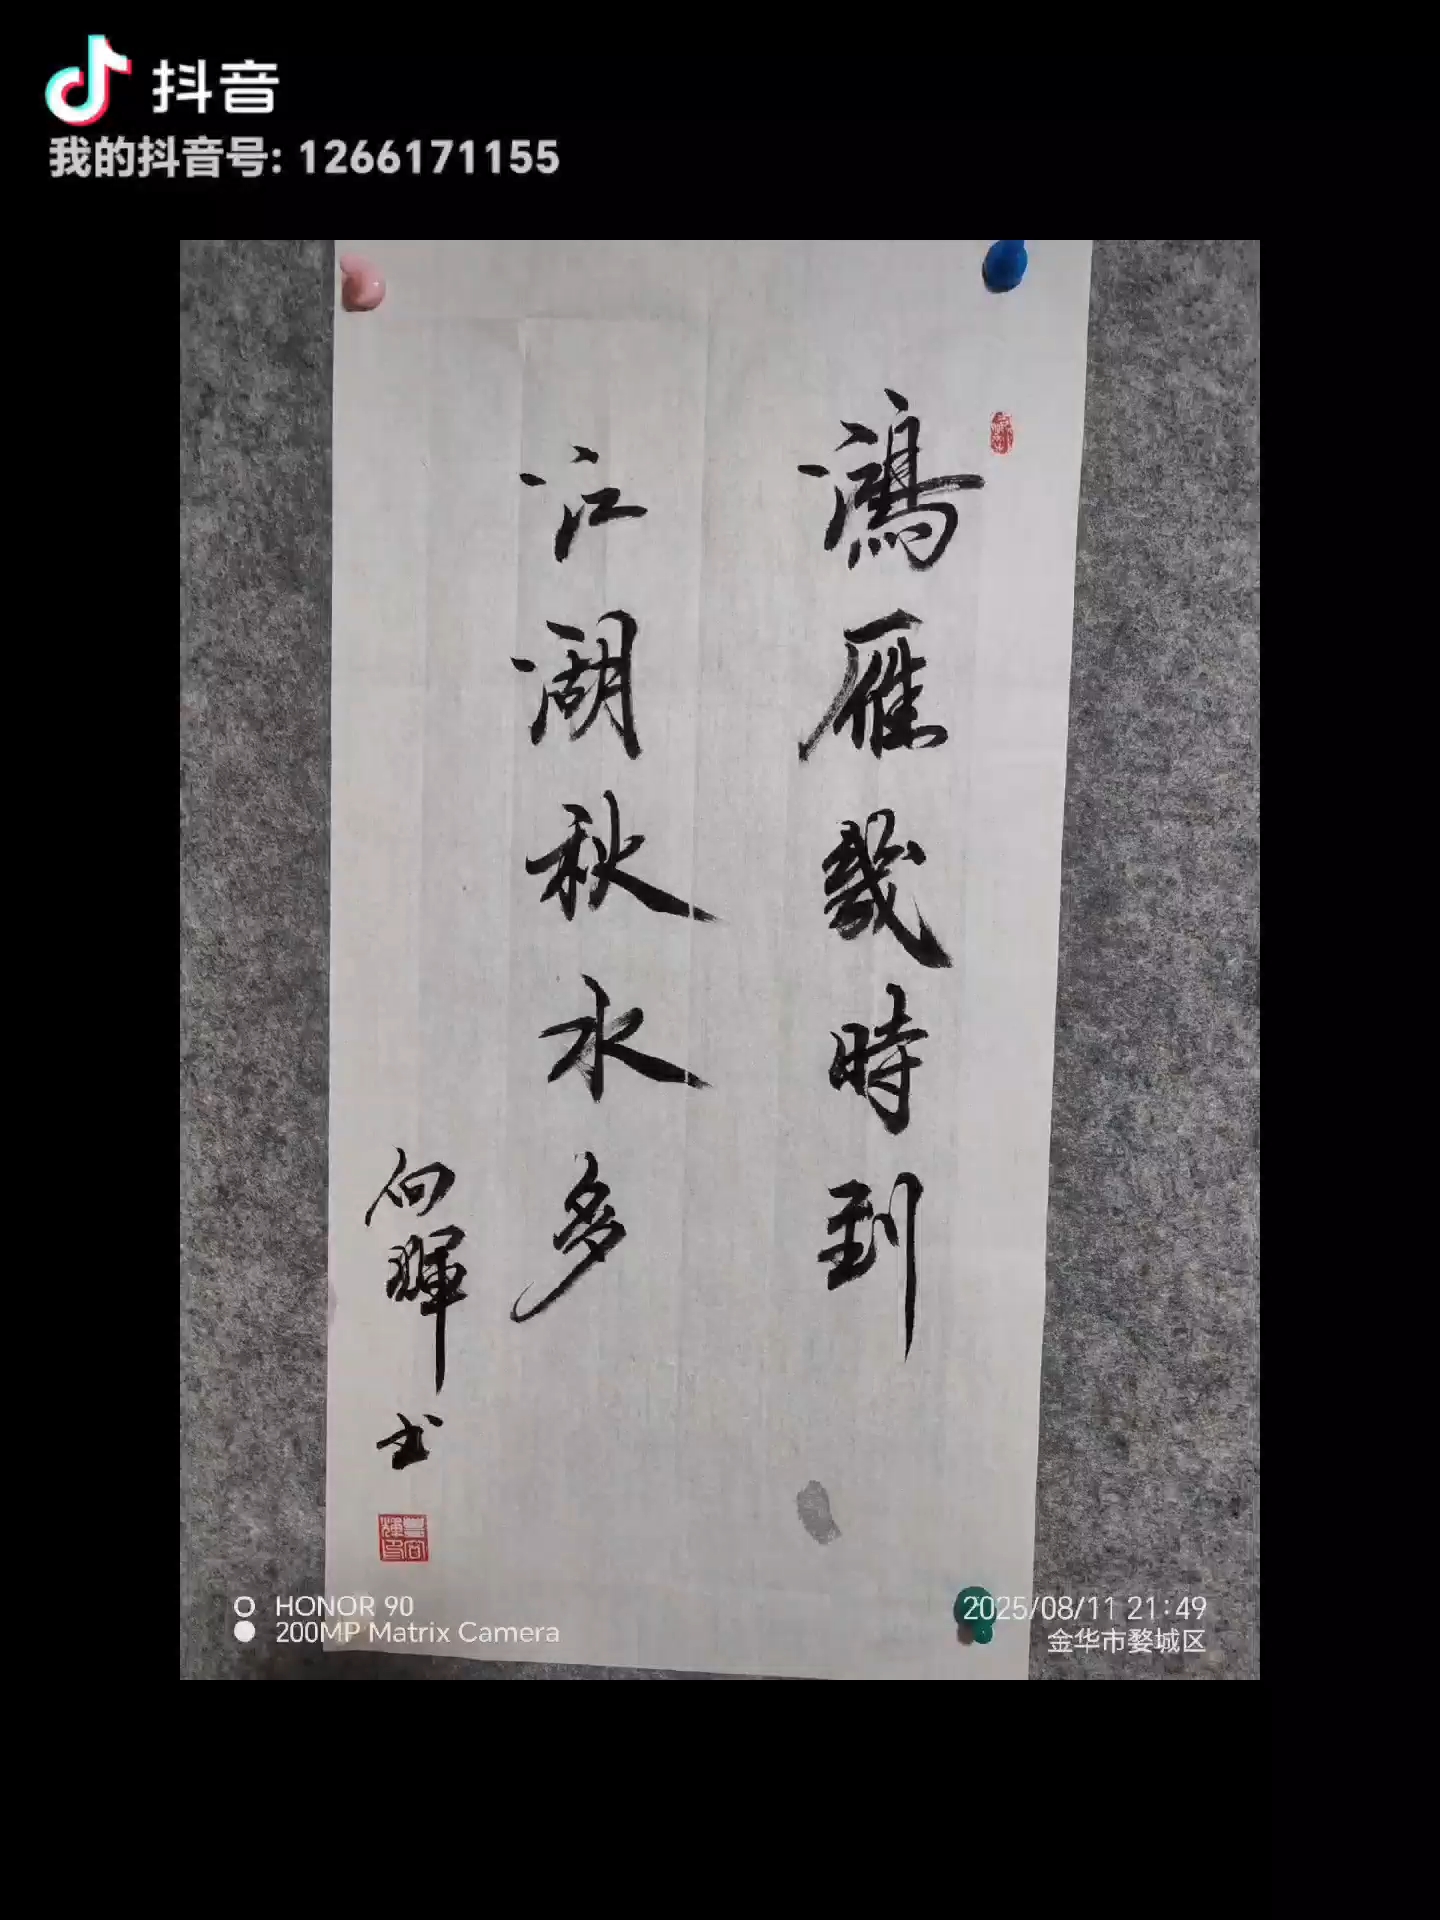 抖音
我的抖音号: 1266171155
鴻雁幾時到
江湖秋水多
向暉书
HONOR 90
200MP Matrix Camera
2025/08/11 21:49
金华市婺城区